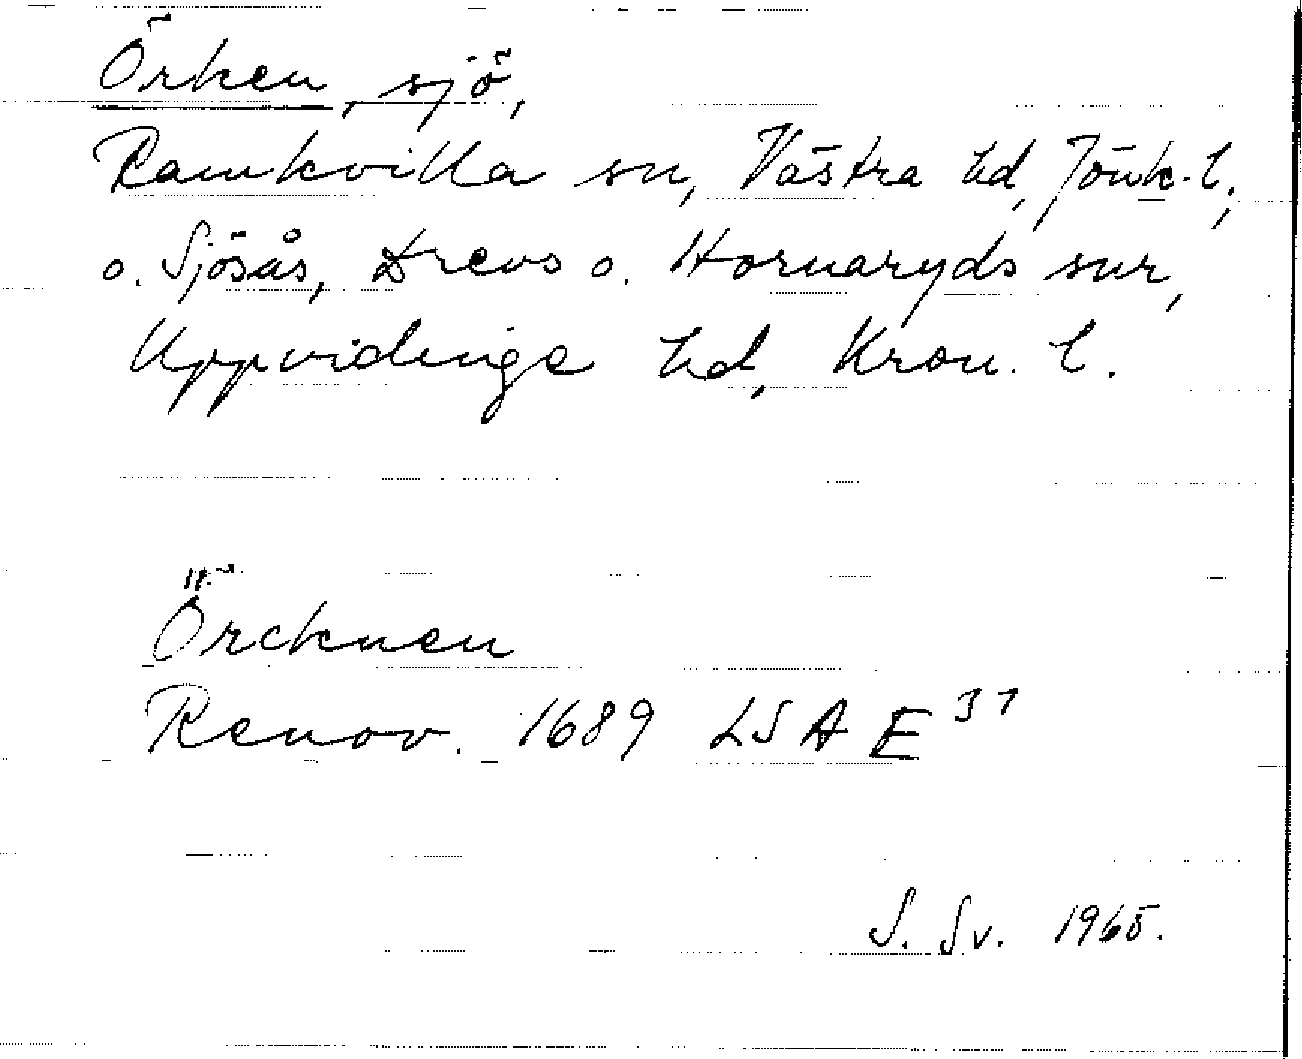 Örken, sjö,
Ramkvilla sn, Västra hd, Jönk. l.,
o. Sjösås, Drevs o. Hornaryds snr,
Uppvidinge hd, Kron. l.
Örcknen
Renov. 1689 LSA E 37
S. Sv. 1965.